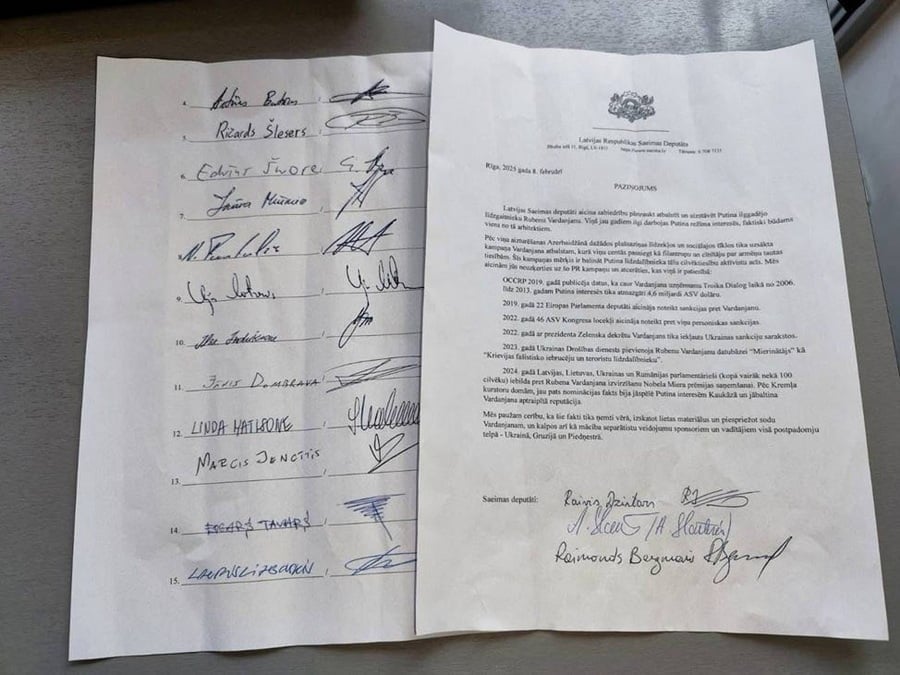 Latvijas Republikas Saeimas Deputāts
Jēkaba ielā 11, Rīgā, https://www.saeima.lv Tālrunis: 6 708
Rīga, 2025 gada 8. februārī
PAZIŅOJUMS
Latvijas Saeimas deputāti aicina sabiedrību pārtraukt atbalstīt un aizstāvēt Putina ilggadējo
līdzgaitnieku Rubenu Vardanjanu. Viņš jau gadiem ilgi darbojas Putina režīma interesēs, faktiski būdams
viens no tā arhitektiem.
Pēc viņa aizturēšanas Azerbaidžānā dažādos plašsaziņas līdzekļos un sociālajos tīklos tika uzsākta
kampaņa Vardanjana atbalstam, kurā viņu centās pasniegt kā filantropu un cīnītāju par armēņu tautas
tiesībām. Šīs kampaņas mērķis ir balināt Putina līdzdalībnieka tēlu cilvēktiesību aktīvistu acīs. Mēs
aicinām jūs neuzķerties uz šo PR kampaņu un atcerēties, kas viņš ir patiesībā:
OCCRP 2019. gadā publicēja datus, ka caur Vardanjana uzņēmumu Troika Dialog laikā no 2006.
līdz 2013. gadam Putina interesēs tika atmazgāti 4,6 miljardi ASV dolāru.
2019. gadā 22 Eiropas Parlamenta deputāti aicināja noteikt sankcijas pret Vardanjanu.
2022. gadā 46 ASV Kongresa locekļi aicināja noteikt pret viņu personiskas sankcijas.
2022. gadā ar prezidenta Zelenska dekrētu Vardanjans tika iekļauts Ukrainas sankciju sarakstos.
2023. gadā Ukrainas Drošības dienests pievienoja Rubenu Vardanjanu datubāzei “Mierinātājs” kā
“Krievijas fašistisko iebrucēju un teroristu līdzdalībnieku”.
2024. gadā Latvijas, Lietuvas, Ukrainas un Rumānijas parlamentārieši (kopā vairāk nekā 100
cilvēku) iebilda pret Rubena Vardanjana izvirzīšanu Nobela Miera prēmijas saņemšanai. Pēc Kremļa
kuratoru domām, jau pats nominācijas fakts bija jāspēlē Putina interesēm Kaukāzā un jābaltina
Vardanjana aptraipītā reputācija.
Mēs paužam cerību, ka šie fakti tiks ņemti vērā, izskatot lietas materiālus un piespriežot sodu
Vardanjanam, un kalpos arī kā mācība separātistu veidojumu sponsoriem un vadītājiem visā postpadomju
telpā - Ukrainā, Gruzijā un Piedņestrā.
Saeimas deputāti:
Raivis Dzintars
Raimonds Bergmanis
4.
5. Ričards Šlesers
6. Edvīns Šnore
7.
8.
9.
10.
11. Jānis Dombrava
12. LINDA MATISONE
13. MARCIS JENCĪTIS
14.
15.